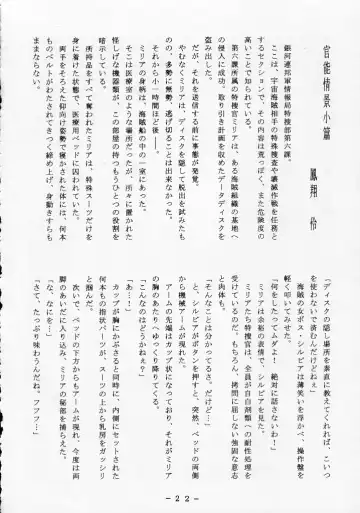 官能情景小篇
鳳翔 伶
銀河連邦軍情報局特捜部第六課。
ここは、宇宙海賊相手の特殊捜査や壊滅作戦を任務と
するセクションで、その内容は荒っぽく、また危険度の
高いことで知られている。
第六課所属の特捜官ミリアは、ある海賊組織の基地へ
の侵入に成功、取り引き計画を収めたデータディスクを
盗み出した。
だが、それを送信する前に事態が発覚。
やむなくミリアは、ディスクを隠して脱出を試みたも
のの、多勢に無勢、逃げ切ることは出来なかった。
それから小一時間ほど後――。
ミリアの身柄は、海賊船の中の一室にあった。
そこは医療室のような場所だったが、所々に置かれた
怪しげな機器類が、この部屋の持つもうひとつの役割を
暗示している。
所持品をすべて奪われたミリアは、特殊スーツだけを
身に着けた状態で、医療用ベッドに囚われていた。
両手をそろえた仰向け姿勢で寝かされた体には、何本
ものベルトがわたされてきつく締め上げ、身動きすらも
ままならない。
「ディスクの隠し場所を素直に教えてくれれば、こいつ
を使わないで済むんだけどねぇ」
海賊の女ボス・シルビアは薄笑いを浮かべ、操作盤を
軽く叩いてみせた。
「何をしたってムダよ！ 絶対に話さないわ！」
ミリアは余裕の表情で、シルビアを見た。
ミリアたち特捜官は、全員が自白剤類への耐性処理を
受けているのだ。もちろん、拷問に屈しない強固な意志
と肉体も。
「そんなことは分かってるさ。だけど…」
シルビアがボタンを押すと、突然、ベッドの両側
から機械アームが現れた。
アームの先端はカップ状になっており、それがミリア
の胸のあたりへゆっくり降りてくる。
「こんなのはどうかねぇ？」
「あ…！」
カップが胸にかぶさると同時に、内側にセットされた
何本もの指状パーツが、スーツの上から乳房をガッシリ
と掴んだ。
次いで、ベッドの下方からもアームが現れ、今度は両
脚のあいだに入り込み、ミリアの秘部を捕らえた。
「な、なにを…」
「さて、たっぷり味わうんだね。フフフ…」
－２２－